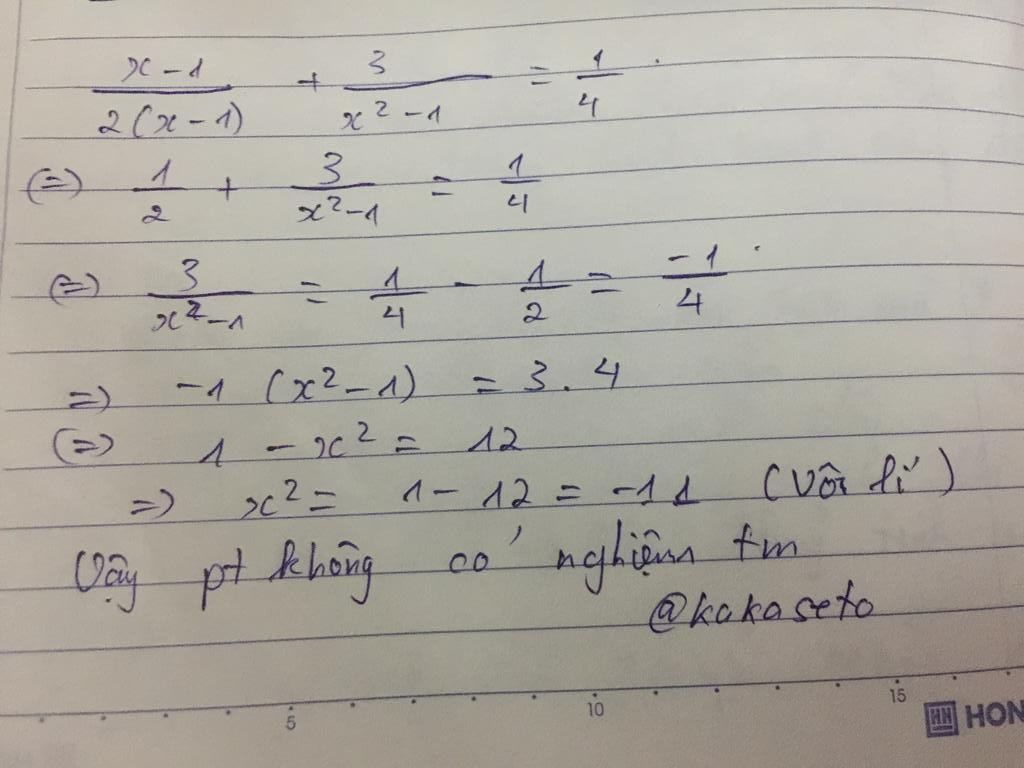 x - 1 / 2(x - 1) + 3 / x² - 1 = 1 / 4
(=) 1 / 2 + 3 / x² - 1 = 1 / 4
(=) 3 / x² - 1 = 1 / 4 - 1 / 2 = -1 / 4
=) -1 (x² - 1) = 3 . 4
(=) 1 - x² = 12
=) x² = 1 - 12 = -11 (Vôi lí)
Vậy pt không có nghiệm tm
@kakaseto
5 10 15
HN HON